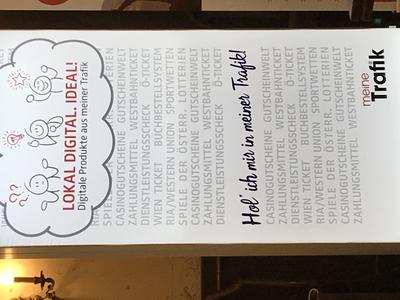 LOKAL DIGITAL. IDEAL!
Digitale Produkte aus meiner Trafik
SPIELE DER ÖSTERR. LOTTERIEN
CASINOGUTSCHEINE GUTSCHEINWELT
ZAHLUNGSMITTEL WESTBAHNTICKET
DIENSTLEISTUNGSSCHECK Ö-TICKET
WIEN TICKET BUCHBESTELLSYSTEM
RIA/WESTERN UNION SPORTWETTEN
SPIELE DER ÖSTERR. LOTTERIEN
CASINOGUTSCHEINE GUTSCHEINWELT
ZAHLUNGSMITTEL WESTBAHNTICKET
DIENSTLEISTUNGSSCHECK Ö-TICKET
Hol' ich mir in meiner Trafik!
CASINOGUTSCHEINE GUTSCHEINWELT
ZAHLUNGSMITTEL WESTBAHNTICKET
DIENSTLEISTUNGSSCHECK Ö-TICKET
WIEN TICKET BUCHBESTELLSYSTEM
RIA/WESTERN UNION SPORTWETTEN
SPIELE DER ÖSTERR. LOTTERIEN
CASINOGUTSCHEINE GUTSCHEINWELT
ZAHLUNGSMITTEL WESTBAHNTICKET
meine
Trafik